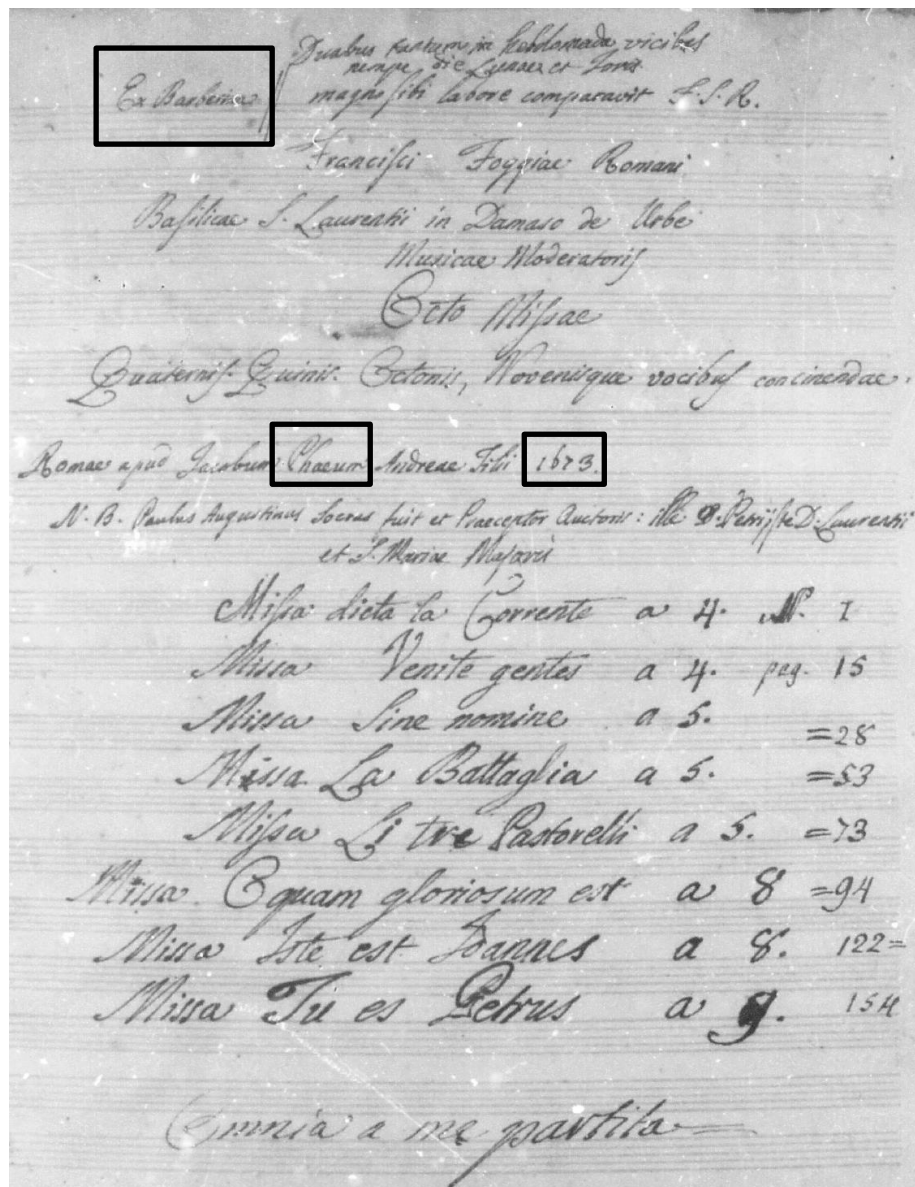 Duabus tantum in hebdomada vicibus
nempe die Lunae et Jovis
Ex Barberina // magno sibi labore comparavit F. S. R.
Francisci Foggiae Romani
Basilicae S. Laurentii in Damaso de Urbe
Musicae Moderatoris
Octo Missae
Quaternis. Quinis. Octonis, Novenisque vocibus concinendae.
Romae apud Jacobum Phaeum Andreae Filii 1673.
N. B. Paulus Augustinus Socrus fuit et Praeceptor Auctoris: ille D. Petri, iste D. Laurentii
et S. Mariae Majoris
Missa dicta la Corrente a 4. 1
Missa Venite gentes a 4. pag. 15
Missa Sine nomine a 5. =28
Missa La Battaglia a 5. =53
Missa Li tre Pastorelli a 5. =73
Missa O quam gloriosum est a 8 =94
Missa Iste est Joannes a 8. 122=
Missa Tu es Petrus a 9. 154
Omnia a me partita=